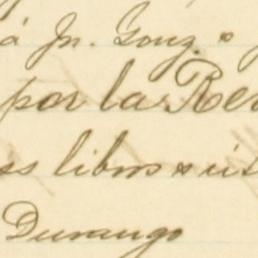 á Jn. Gonz.º
por la Rec
ss libros o út
Durango